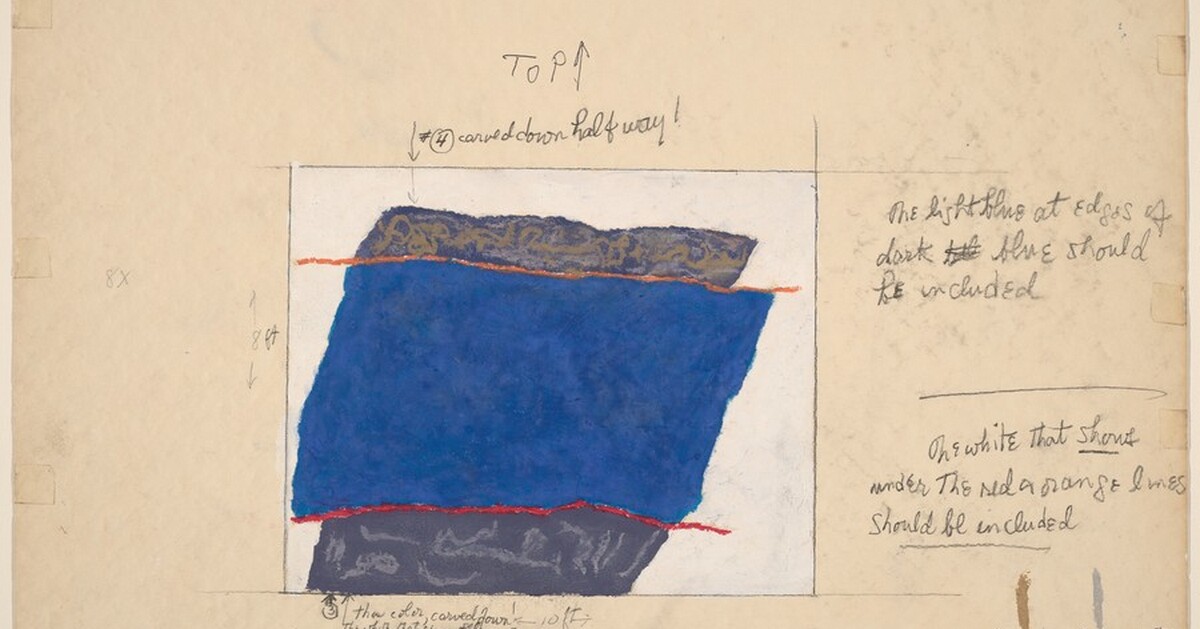 TOP
#4 carved down half way!
The light blue at edges of
dark blue should
be included
8X
8 ft
The white that shows
under The red or orange lines
should be included
3
color, carved down! 10 ft